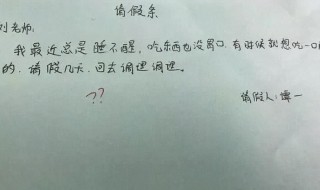 请假条
刘老师:
我最近总是睡不醒,吃东西也没胃口,有时候就想吃一口
的,请假几天,回去调理调理。
??
请假人:谭一